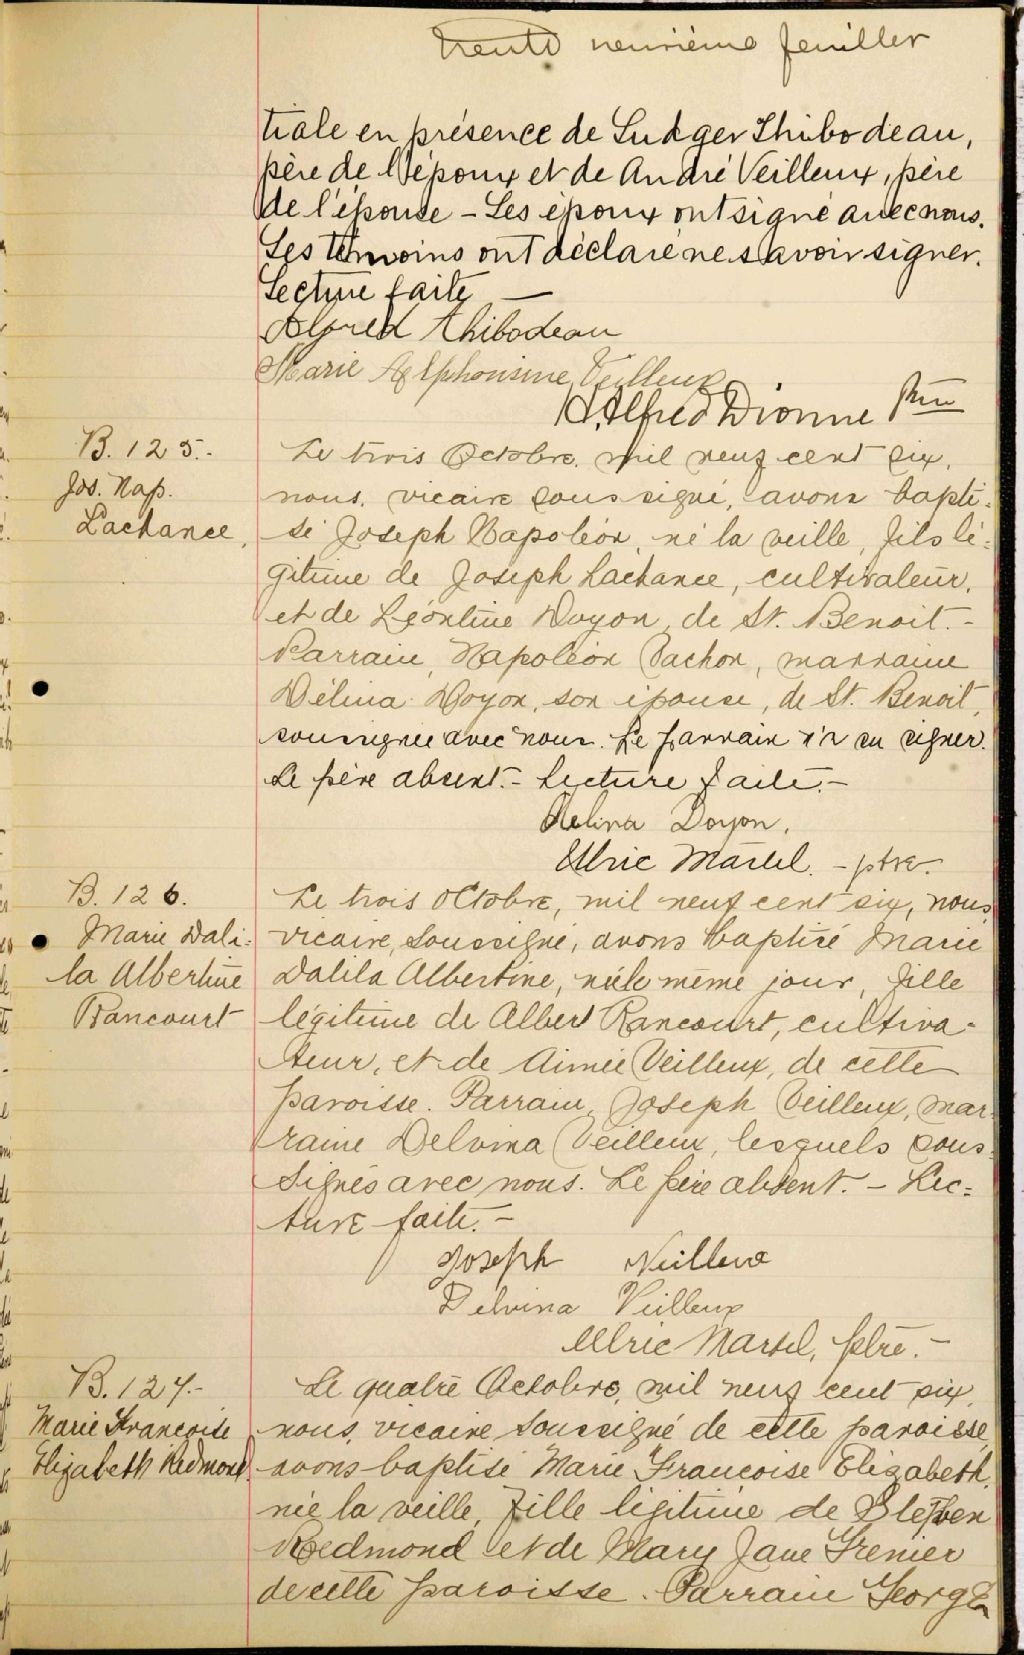 trente neuvième feuillet
tiale en présence de Ludger Thibodeau,
père de l'époux et de André Veilleux, père
de l'épouse – Les époux ont signé avec nous.
Les témoins ont déclaré ne savoir signer.
Lecture faite —
Alfred Thibodeau
Marie Alphonsine Veilleux
H. Alfred Dionne Ptre
B. 125.-
Jos. Nap.
Lachance,
Le trois Octobre, mil neuf cent six,
nous, vicaire soussigné, avons bapti-
sé Joseph Napoléon, né la veille, fils lé-
gitime de Joseph Lachance, cultivateur,
et de Léontine Doyon, de St. Benoit.-
Parrain, Napoléon Vachon, marraine
Délina Doyon, son épouse, de St. Benoit,
soussignée avec nous. Le parrain n'a su signer.
Le père absent.- Lecture faite.-
Delina Doyon.
Ulric Martel. - ptre.
B. 126.
Marie Dali-
la Albertine
Rancourt
Le trois Octobre, mil neuf cent six, nous,
vicaire, soussigné, avons baptisé Marie
Dalila Albertine, née le même jour, fille
légitime de Albert Rancourt, cultiva-
teur, et de Aimée Veilleux, de cette
paroisse. Parrain, Joseph Veilleux, mar-
raine Delvina Veilleux, lesquels sous-
signés avec nous. Le père absent. - Lec-
ture faite.-
Joseph Veilleux
Delvina Veilleux
Ulric Martel, ptre.-
B. 127.-
Marie Françoise
Elizabeth Redmond
Le quatre Octobre, mil neuf cent six,
nous, vicaire soussigné de cette paroisse,
avons baptisé Marie Françoise Elizabeth,
née la veille, fille légitime de Stephen
Redmond et de Mary Jane Grenier
de cette paroisse. Parrain George